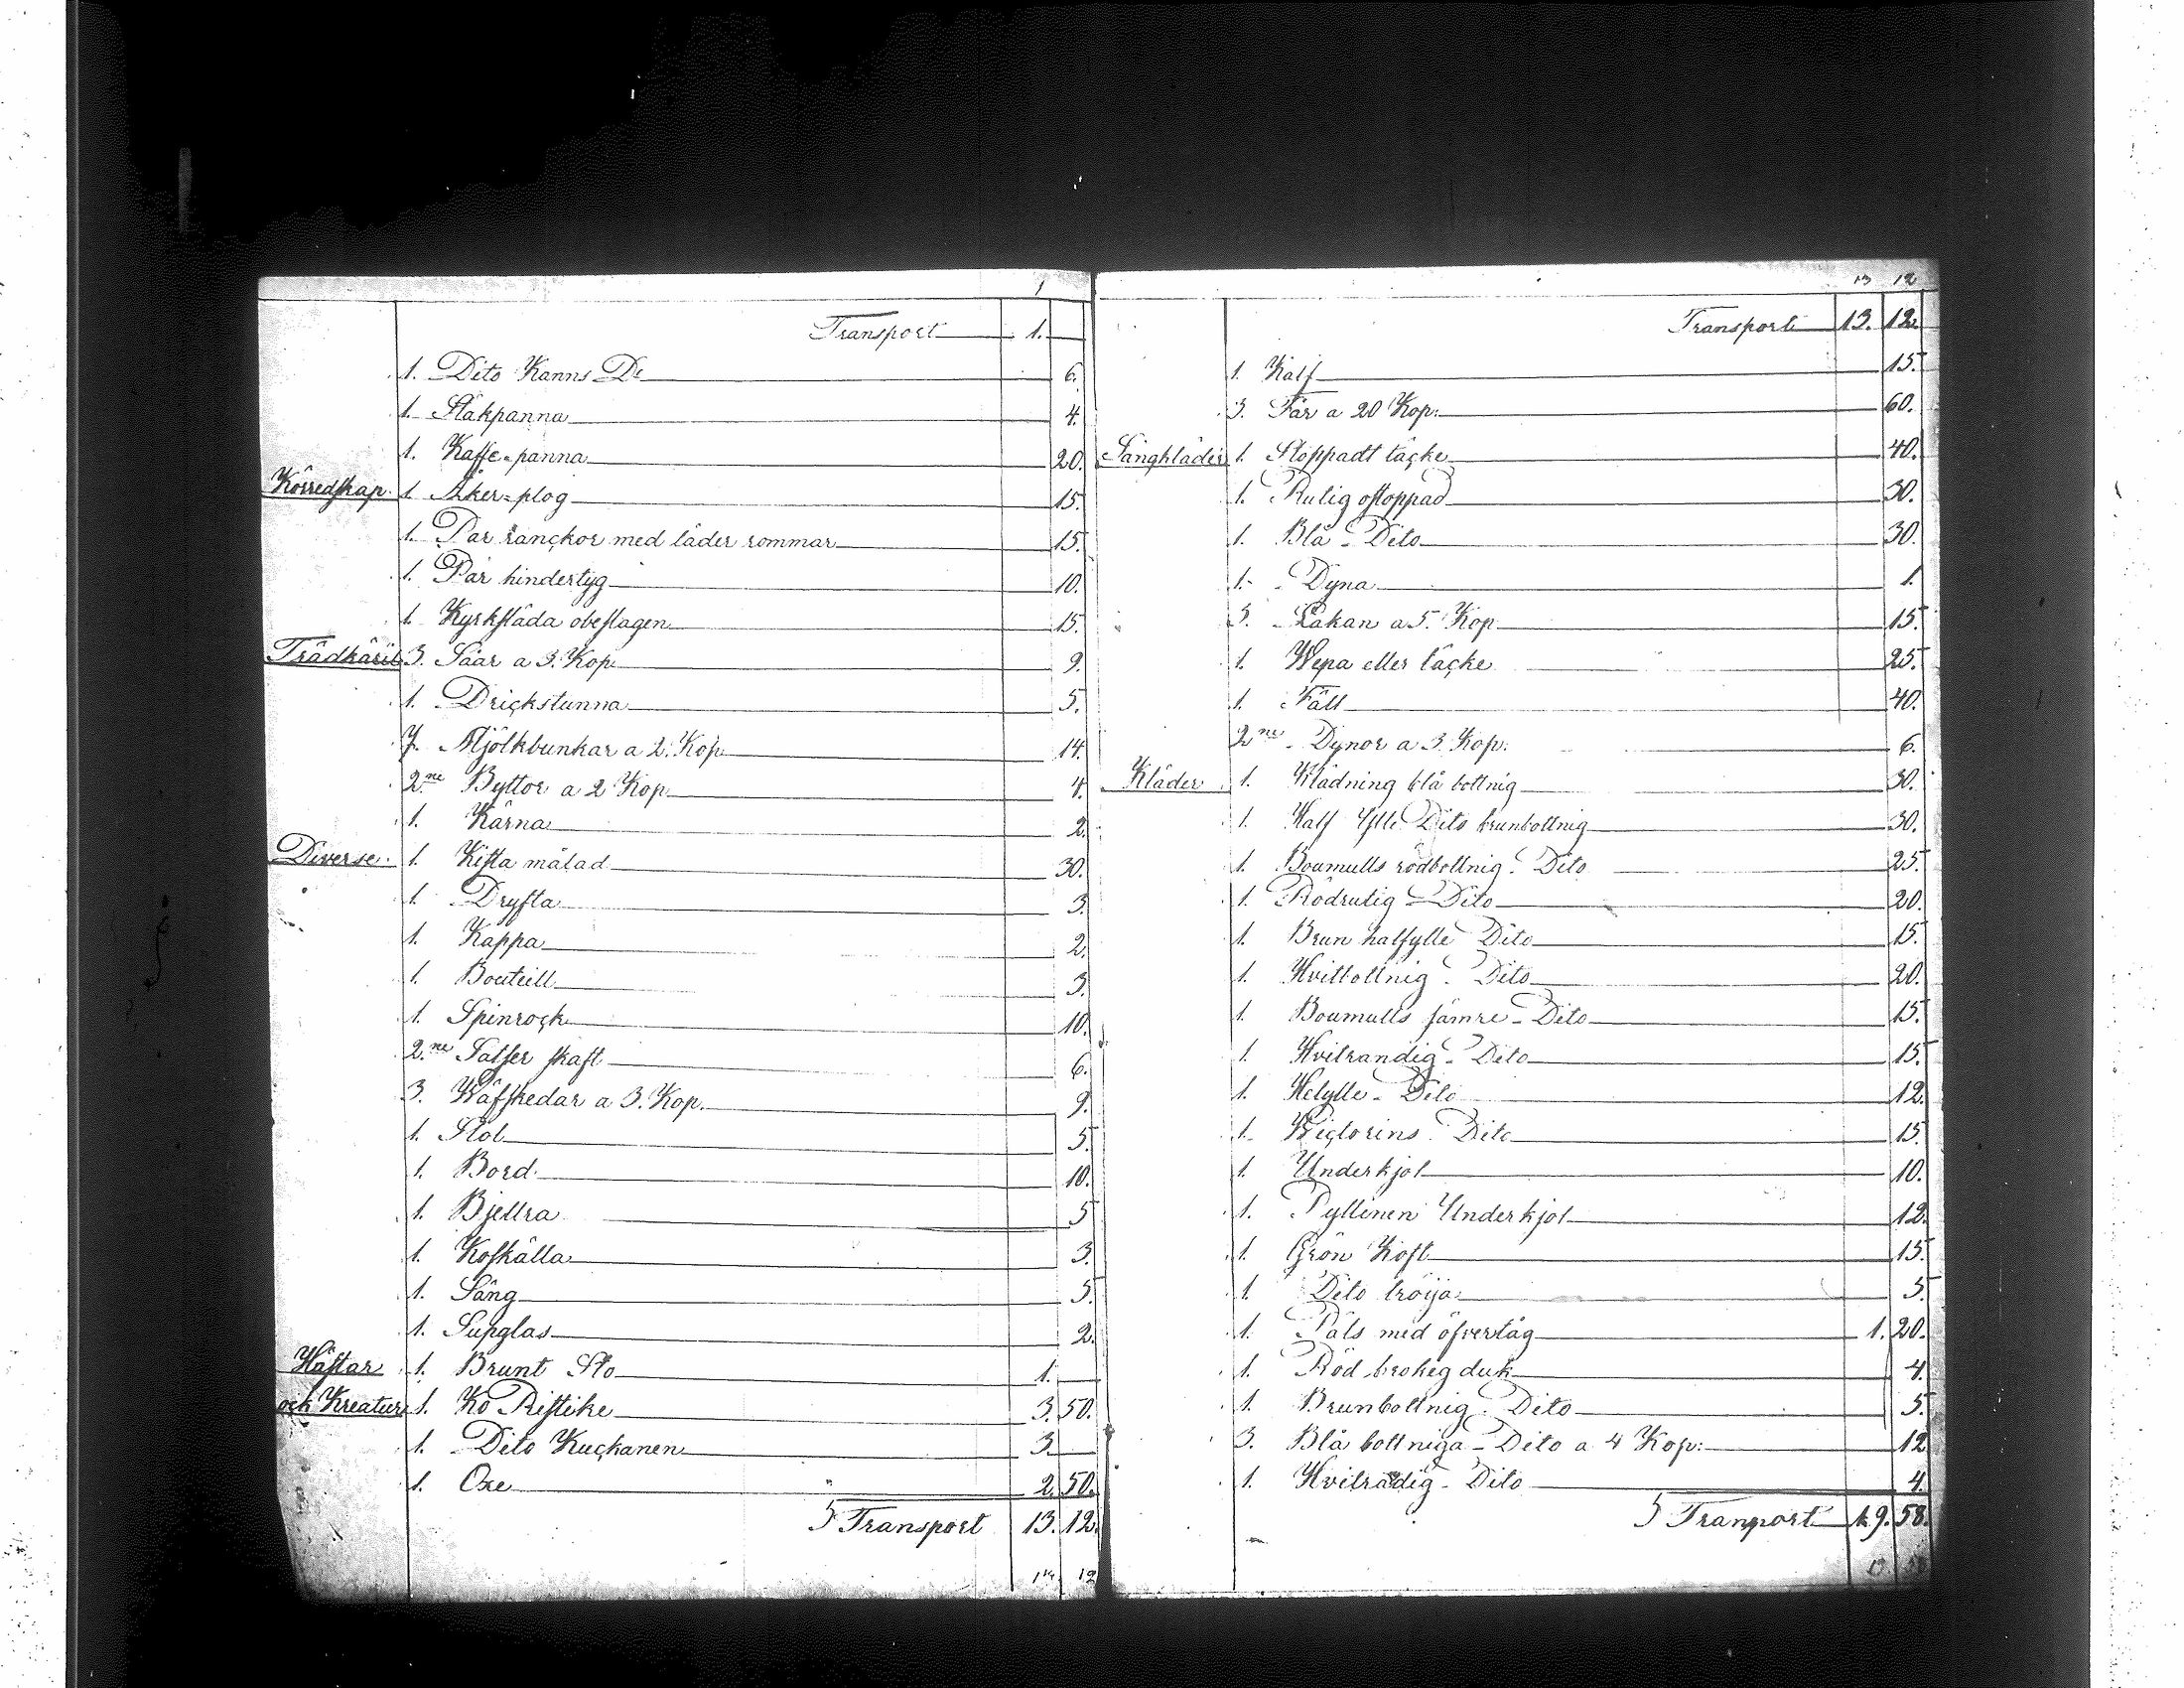 1
Transport 1.
1. Dito Kanns De 6.
1. Stäkpanna 4.
1. Kaffe-panna 20.
Körredskap. 1. Åker-plog 15.
1. Par ranckor med läder rommar 15.
1. Par hindertyg 10.
1. Kyrksläda obeslagen 15.
Trädkäril 3. Såar a 3. Kop. 9.
1. Drickstunna 5.
7. Mjölkbunkar a 2. Kop 14.
2ne Byttor a 2 Kop 4.
1. Kärna 2.
Diverse. 1. Kista målad 30.
1. Dryfta 3.
1. Kappa 2.
1. Bouteill 3.
1. Spinrock 10.
2.ne Satser skaft 6.
3. Wäfskedar a 3. Kop. 9.
1. Stol 5
1. Bord 10.
1. Bjellra 5
1. Koskälla 3.
1. Säng 5.
1. Supglas 2.
Hästar 1. Brunt Sto 1.
ock Kreatur 1. Ko Ristike 3. 50.
1. Dito Kuckanen 3.
1. Oxe 2. 50.
Transport 13. 12.
14 12
13 12
Transport 13. 12.
1. Kalf 15.
3. Får a 20 Kop. 60.
Sängkläder 1. Stoppadt täcke 40.
1. Rutig ostoppad 30.
1. Blå - Dito 30.
1. Dyna 1.
3. Lakan a 5. Kop 15.
1. Wepa eller täcke 25.
1. Fäll 40.
2ne Dynor a 3 Kop. 6.
Kläder 1. Klädning blå bottnig 30.
1. Half Ylle Dito brunbottnig 30.
1. Boumulls rödbottnig. Dito 25
1. Rödrutig - Dito 20.
1. Brun halfylle Dito 15.
1. Hvitbottnig. Dito 20.
1. Boumulls sämre - Dito 15.
1. Hvitrandig - Dito 15.
1. Helylle - Dito 12.
1. Wictorins. Dito 15
1. Underkjol 10.
1. Pyllinen Underkjol 12.
1. Grön Koft 15.
1. Dito tröija 5.
1. Päls med öfvertåg 1. 20.
1. Röd brokeg duk 4.
1. Brunbottnig. Dito 5.
3. Blå bottniga - Dito a 4 Kop: 12
1. Hvitradig - Dito 4.
Tranport 19. 58.